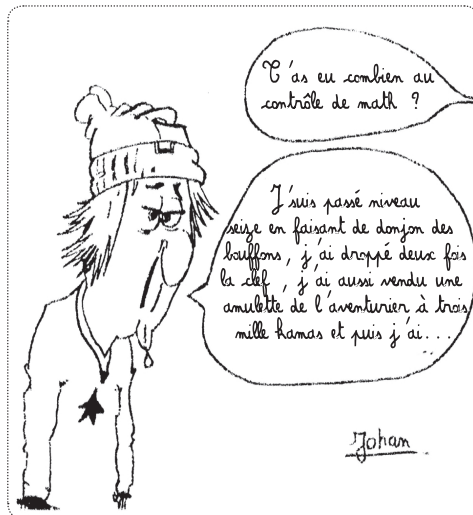 T'as eu combien au
contrôle de math ?
J'suis passé niveau
seize en faisant de donjon des
bouffons, j'ai droppé deux fois
la clef, j'ai aussi vendu une
amulette de l'aventurier à trois
mille kamas et puis j'ai...
Johan